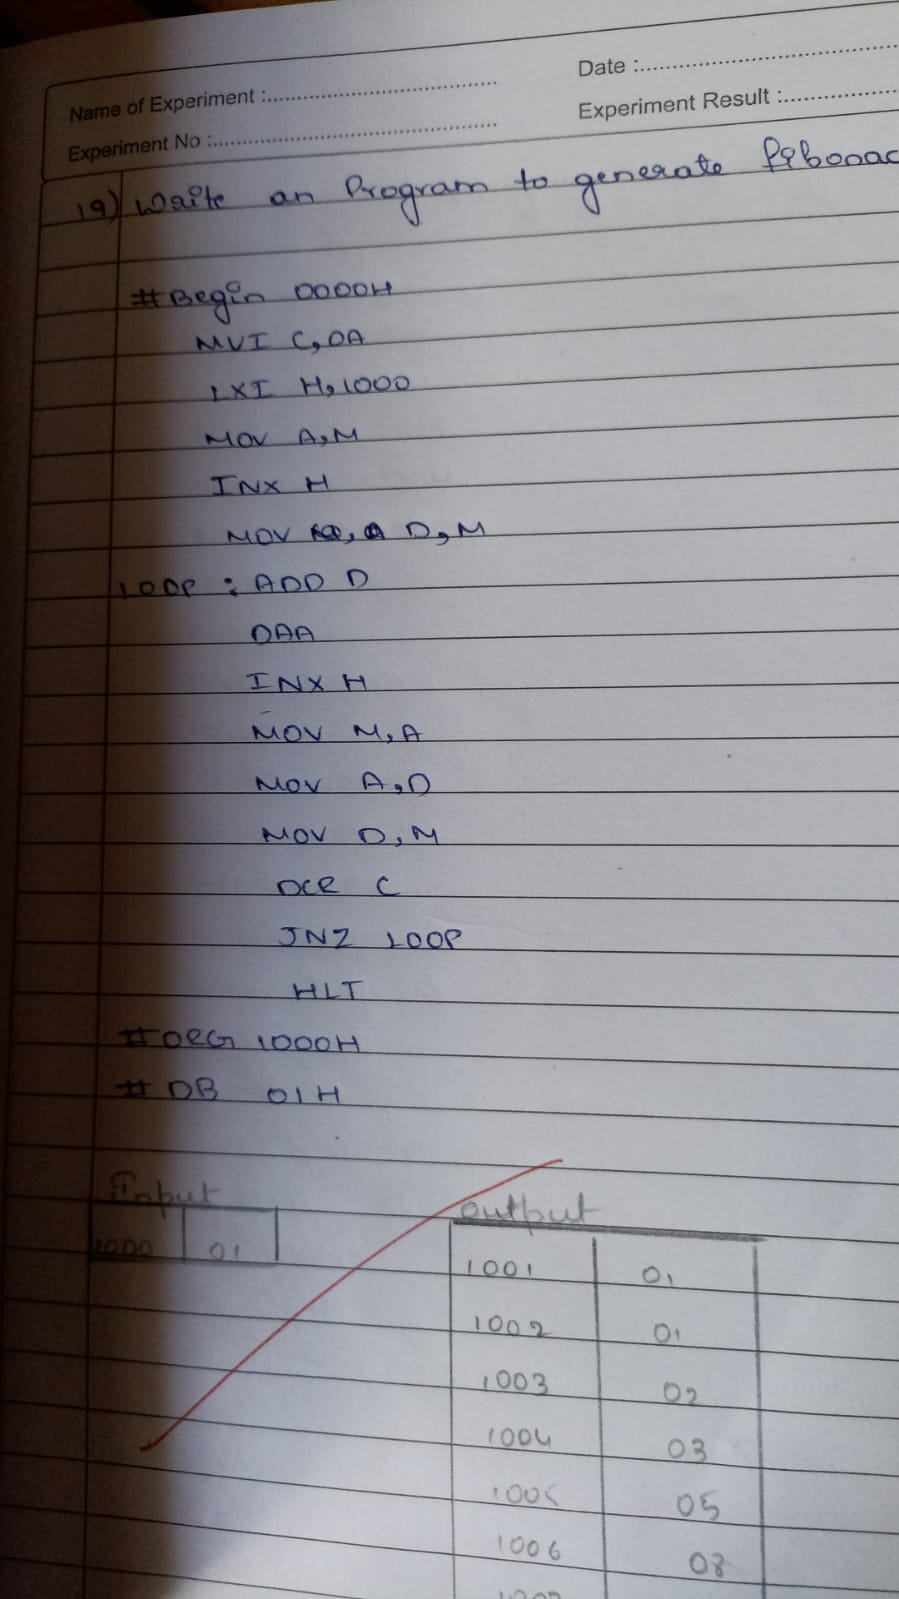 Name of Experiment :
Date :
Experiment No :
Experiment Result :
19) Write an Program to generate fibonac
# Begin 0000H
MVI C,0A
LXI H,1000
MOV A,M
INX H
MOV D,M
LOOP : ADD D
DAA
INX H
MOV M,A
MOV A,D
MOV D,M
DCR C
JNZ LOOP
HLT
# ORG 1000H
# DB 01H
Input
output
1000 01
1001 01
1002 01
1003 02
1004 03
1005 05
1006 08